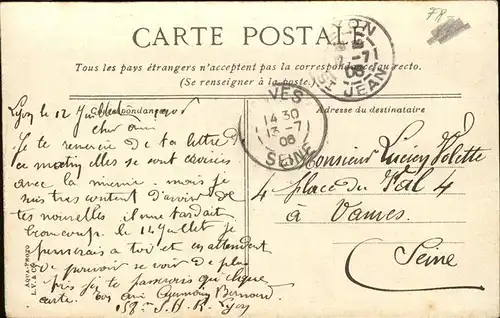 CARTE POSTALE
Tous les pays étrangers n'acceptent pas la correspondance au recto.
(Se renseigner à la poste.)
Correspondance
Adresse du destinataire
LYON
7
06
ST JEAN
VES
14 30
13 - 7
06
SEINE
FR
Lyon le 12 Juillet
cher ami
Je te remercie de ta lettre
ce matin elles se sont croisées
avec la mienne. mais je
suis tres content d'avoir de
tes nouvelles il me tardait
beaucoup. le 14 Juillet je
penserais a toi et en attendant
de pouvoir se voir de plus
près je te passerais
carte. ton ami Bernard
158 Lyon
Monsieur Lucien
4 place du Val 4
à Vanves
Seine
AQUA-PHOTO
L.V. & Cie